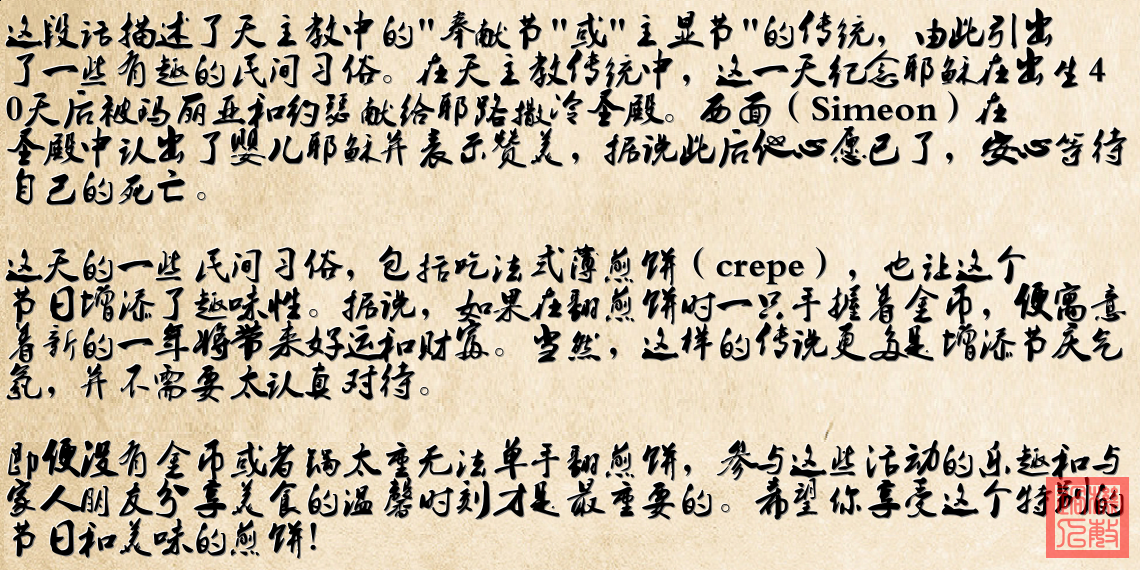 这段话描述了天主教中的"奉献节"或"主显节"的传统，由此引出
了一些有趣的民间习俗。在天主教传统中，这一天纪念耶稣在出生4
0天后被玛丽亚和约瑟献给耶路撒冷圣殿。西面（Simeon）在
圣殿中认出了婴儿耶稣并表示赞美，据说此后他心愿已了，安心等待
自己的死亡。
这天的一些民间习俗，包括吃法式薄煎饼（crepe），也让这个
节日增添了趣味性。据说，如果在翻煎饼时一只手握着金币，便寓意
着新的一年将带来好运和财富。当然，这样的传说更多是增添节庆气
氛，并不需要太认真对待。
即便没有金币或者锅太重无法单手翻煎饼，参与这些活动的乐趣和与
家人朋友分享美食的温馨时刻才是最重要的。希望你享受这个特别的
节日和美味的煎饼!